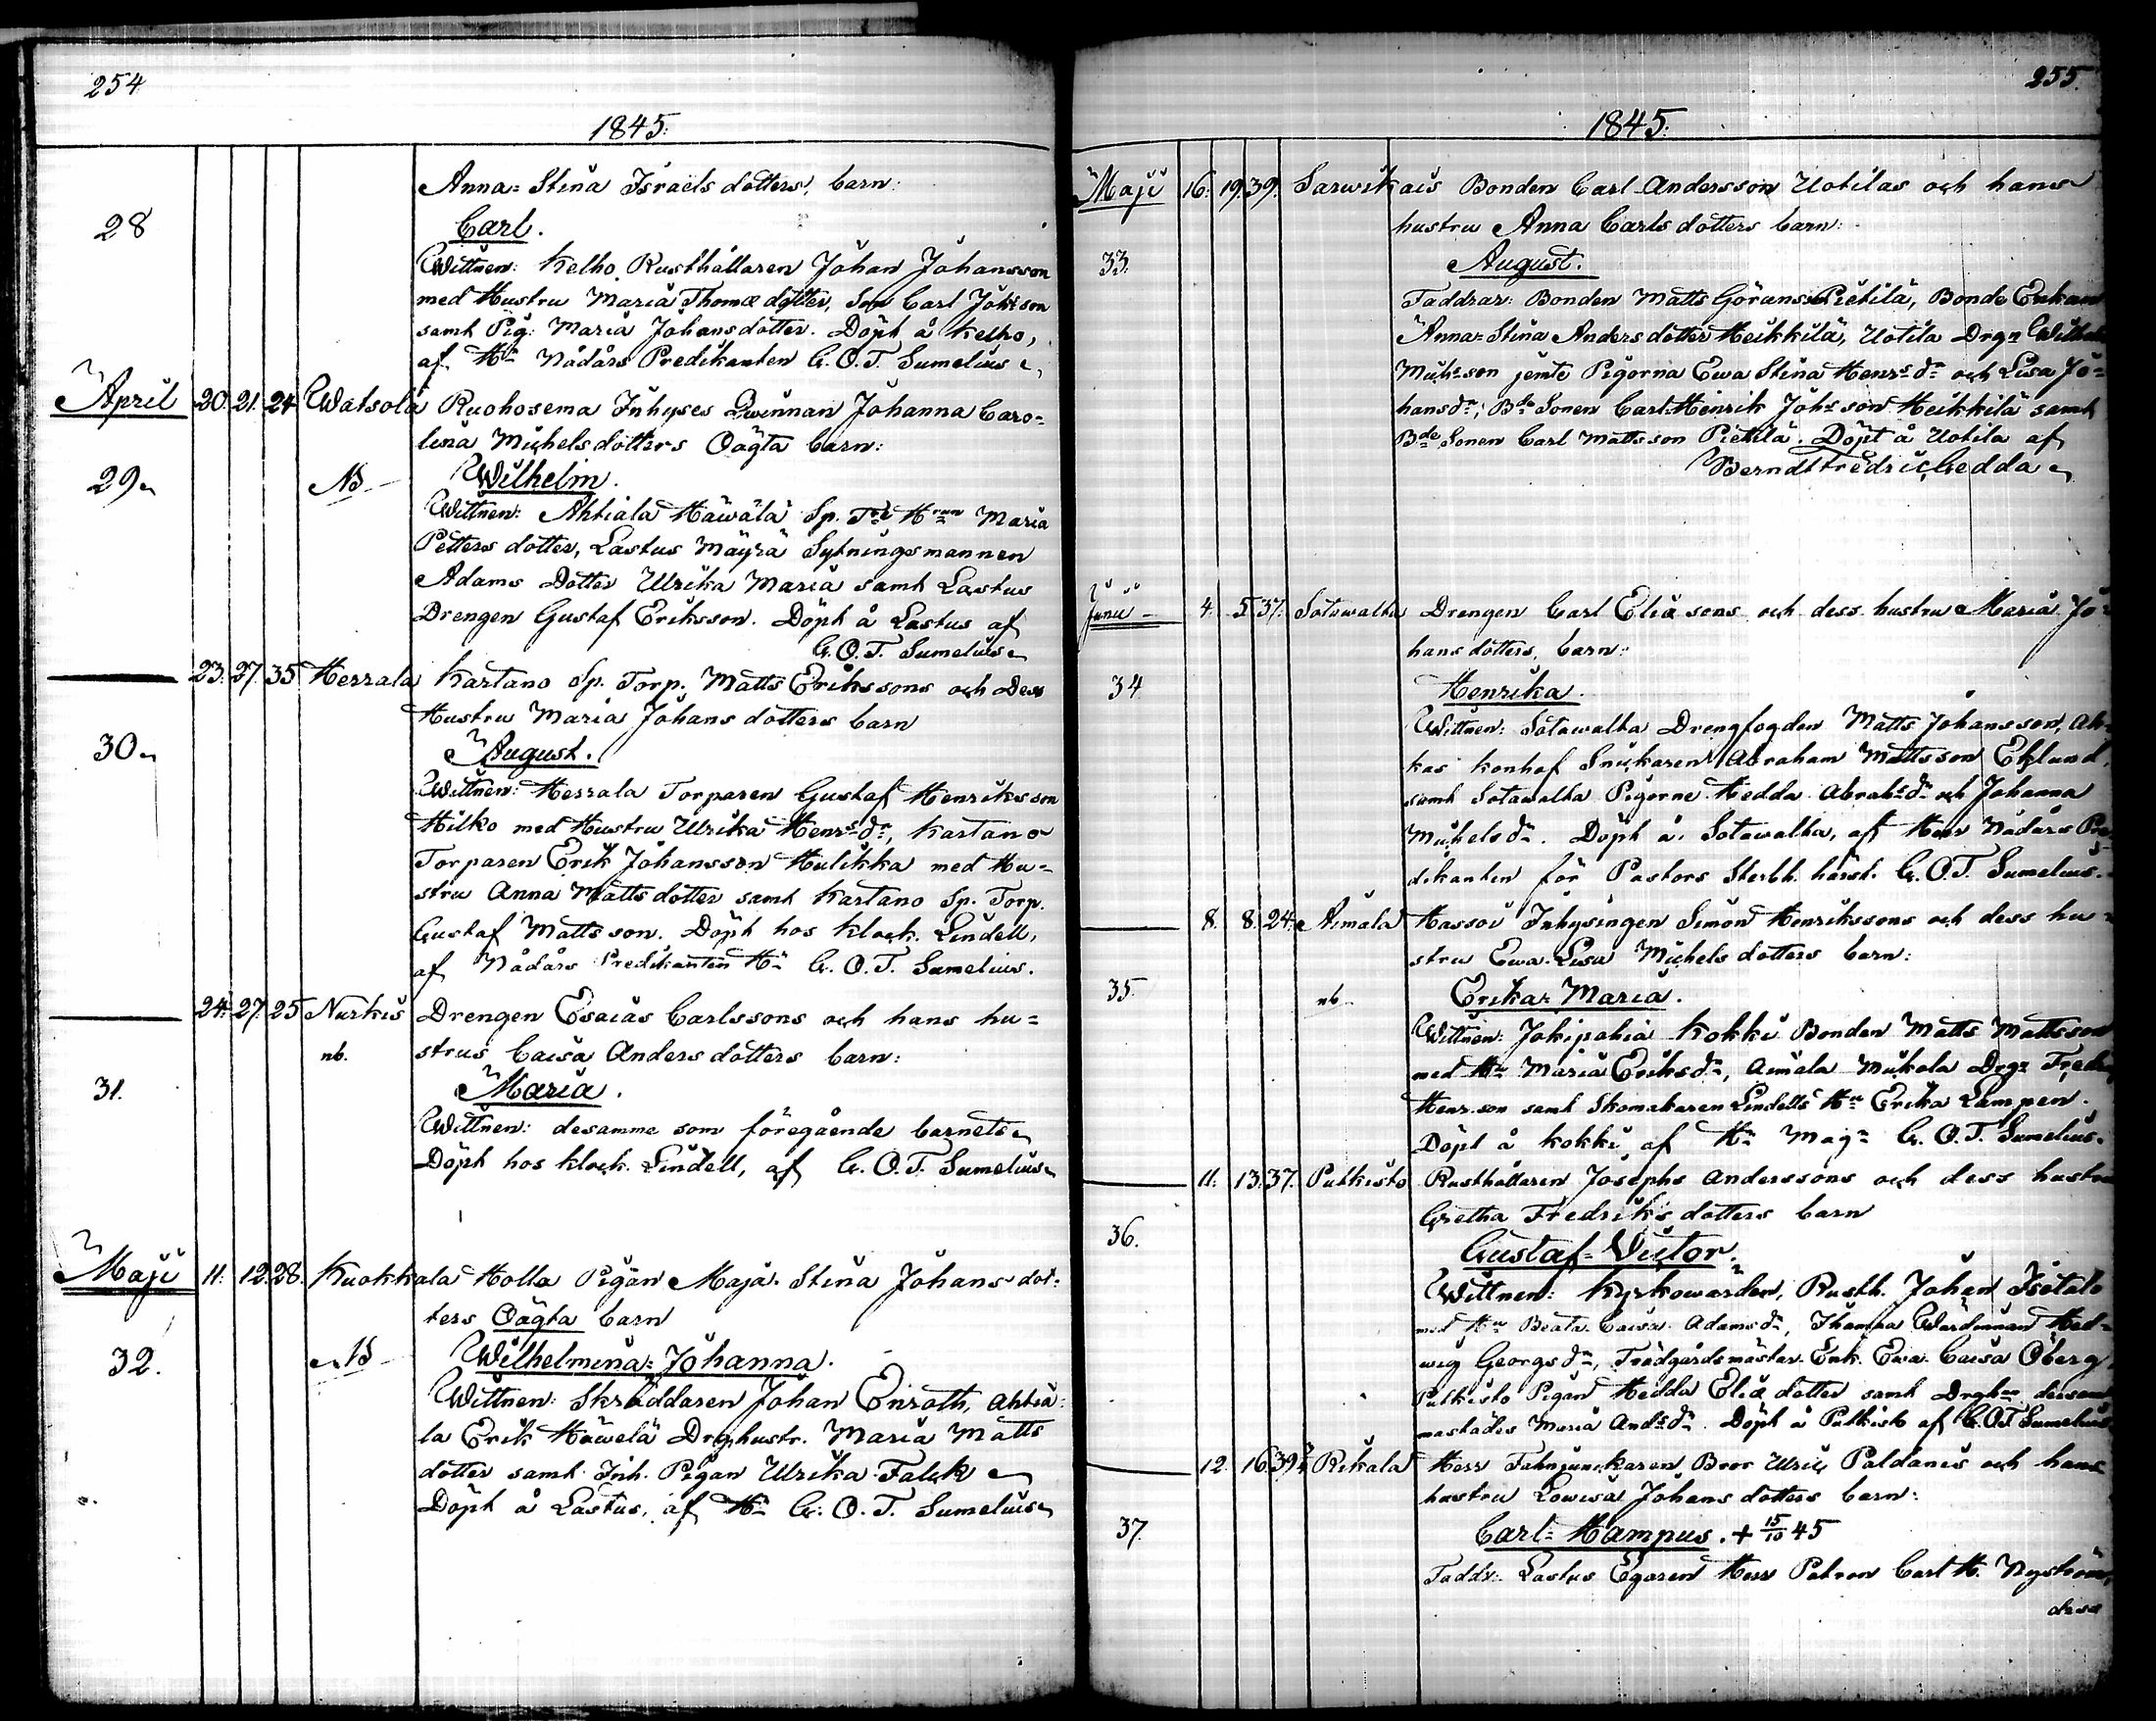 254
1845.
Anna-Stina Israels dotters, barn:
28 Carl.
Wittnen: Kelho Rusthållaren Johan Johansson
med Hustru Maria Thomæ dotter, Son Carl Johsson
samt Pig: Maria Johansdotter. Döpt å Kelho,
af Hr Nådårs Predikanten G. O. T. Sumelius
April 20. 21. 24 Watsola Ruohosema Inhyses Qwinnan Johanna Caro=
lina Michels dotters Oägta barn:
29 NB Wilhelm.
Wittnen: Ahtiala Häwälä Sp. Hrun Maria
Petters dotter, Lastus Mäyrä Sytningsmannen
Adams Dotter Ulrika Maria samt Lastus
Drengen Gustaf Eriksson. Döpt å Lastus af
G. O. T. Sumelius
23. 27. 35 Herrala Kartano Sp. Torp. Matts Erikssons och Dess
Hustru Maria Johans dotters barn
30 August.
Wittnen: Herrala Torparen Gustaf Henriksson
Hilko med Hustru Ulrika Henrs dr, Kartano
Torparen Erik Johansson Hulikka med Hu=
stru Anna Matts dotter samt Kartano Sp. Torp.
Gustaf Mattsson. Döpt hos klock. Lindell,
af Nådårs Predikanten Hr G. O. T. Sumelius.
24. 27. 25 Nurkis Drengen Esaias Carlssons och hans hu=
nb. strus Caisa Anders dotters barn:
31. Maria.
Wittnen: desamma som föregående barnets
Döpt hos klock. Lindell, af G. O. T. Sumelius
Maji 11. 12. 28. Kuokkala Holla Pigan Maja Stina Johans dot=
ters Oägta barn
32. NB Wilhelmina=Johanna.
Wittnen: Skräddaren Johan Enroth, Ahtia=
la Erik Häwelä Drghustr. Maria Matts
dotter samt Inh. Pigan Ulrika Falck
Döpt å Lastus, af Hr G. O. T. Sumelius
255.
1845.
Maji 16. 19. 39. Sarwikais Bonden Carl Andersson Uotilas och hans
hustru Anna Carls dotters barn:
33. August.
Faddrar: Bonden Matts Görans Pietilä, Bonde Enkan
Anna=Stina Anders dotter Heikkilä, Uotila Drgn Wilhelm
Michsson jemte Pigorna Ewa Stina Henrs dr och Lisa Jo=
hansdr, Bde Sonen Carl Henrik Johsson Heikkilä samt
Bde Sonen Carl Mattsson Pietilä. Döpt å Uotila af
Berndt Fredric Gedda
Junii 4. 5. 37. Sotawalta Drengen Carl Eliæ sons och dess hustru Maria Jo=
hans dotters, barn:
34 Henrika.
Wittnen: Sotawalta Drengfogden Matts Johansson, Ah=
kas konhof Snickaren Abraham Mattsson Eklund,
samt Sotawalta Pigorne Hedda Abrahsdr och Johanna
Michelsdr. Döpt å Sotawalta, af Herr Nådårs Pre=
dikanten för Pastors Sterbh. härst. G. O. T. Sumelius.
8. 8. 24. Aimala Hassoi Inhysingen Simon Henrikssons och dess hu=
stru Ewa Lisa Michels dotters barn:
35. nb Erika=Maria.
Wittnen: Jokipohia Kokki Bonden Matts Mattsson
med Hu Maria Eriksdr, Aimala Mickola Drgn Fredr
Henr.son samt Skomakaren Lindells Hu Erika Lampen.
Döpt å Kokki af Hr Magr G. O. T. Sumelius.
11. 13. 37. Putkisto Rusthållaren Josephs Anderssons och dess hustru
Gretha Fredriks dotters barn
36. Gustaf=Victor.
Wittnen: Kyrkowärden, Rusth. Johan Isotalo
med Hu Beata Caisa Adamsdr, Wärdinnan Hed=
wig Georgsdr, Trädgårdsmästar Enk. Ewa Caisa Öberg,
Putkisto Pigan Hedda Eliæ dotter samt Drghu
mastädes Maria Andsdr. Döpt å Putkisto af G. O. T. Sumelius
12. 16. 39 Rikala Herr Fanjunckaren Bror Ulric Paldanis och hans
hustru Lowisa Johans dotters barn:
37. Carl=Hampus. + 15/10 45
Faddr: Lastus Egaren Herr Patron Carl H. Nyström,
dess